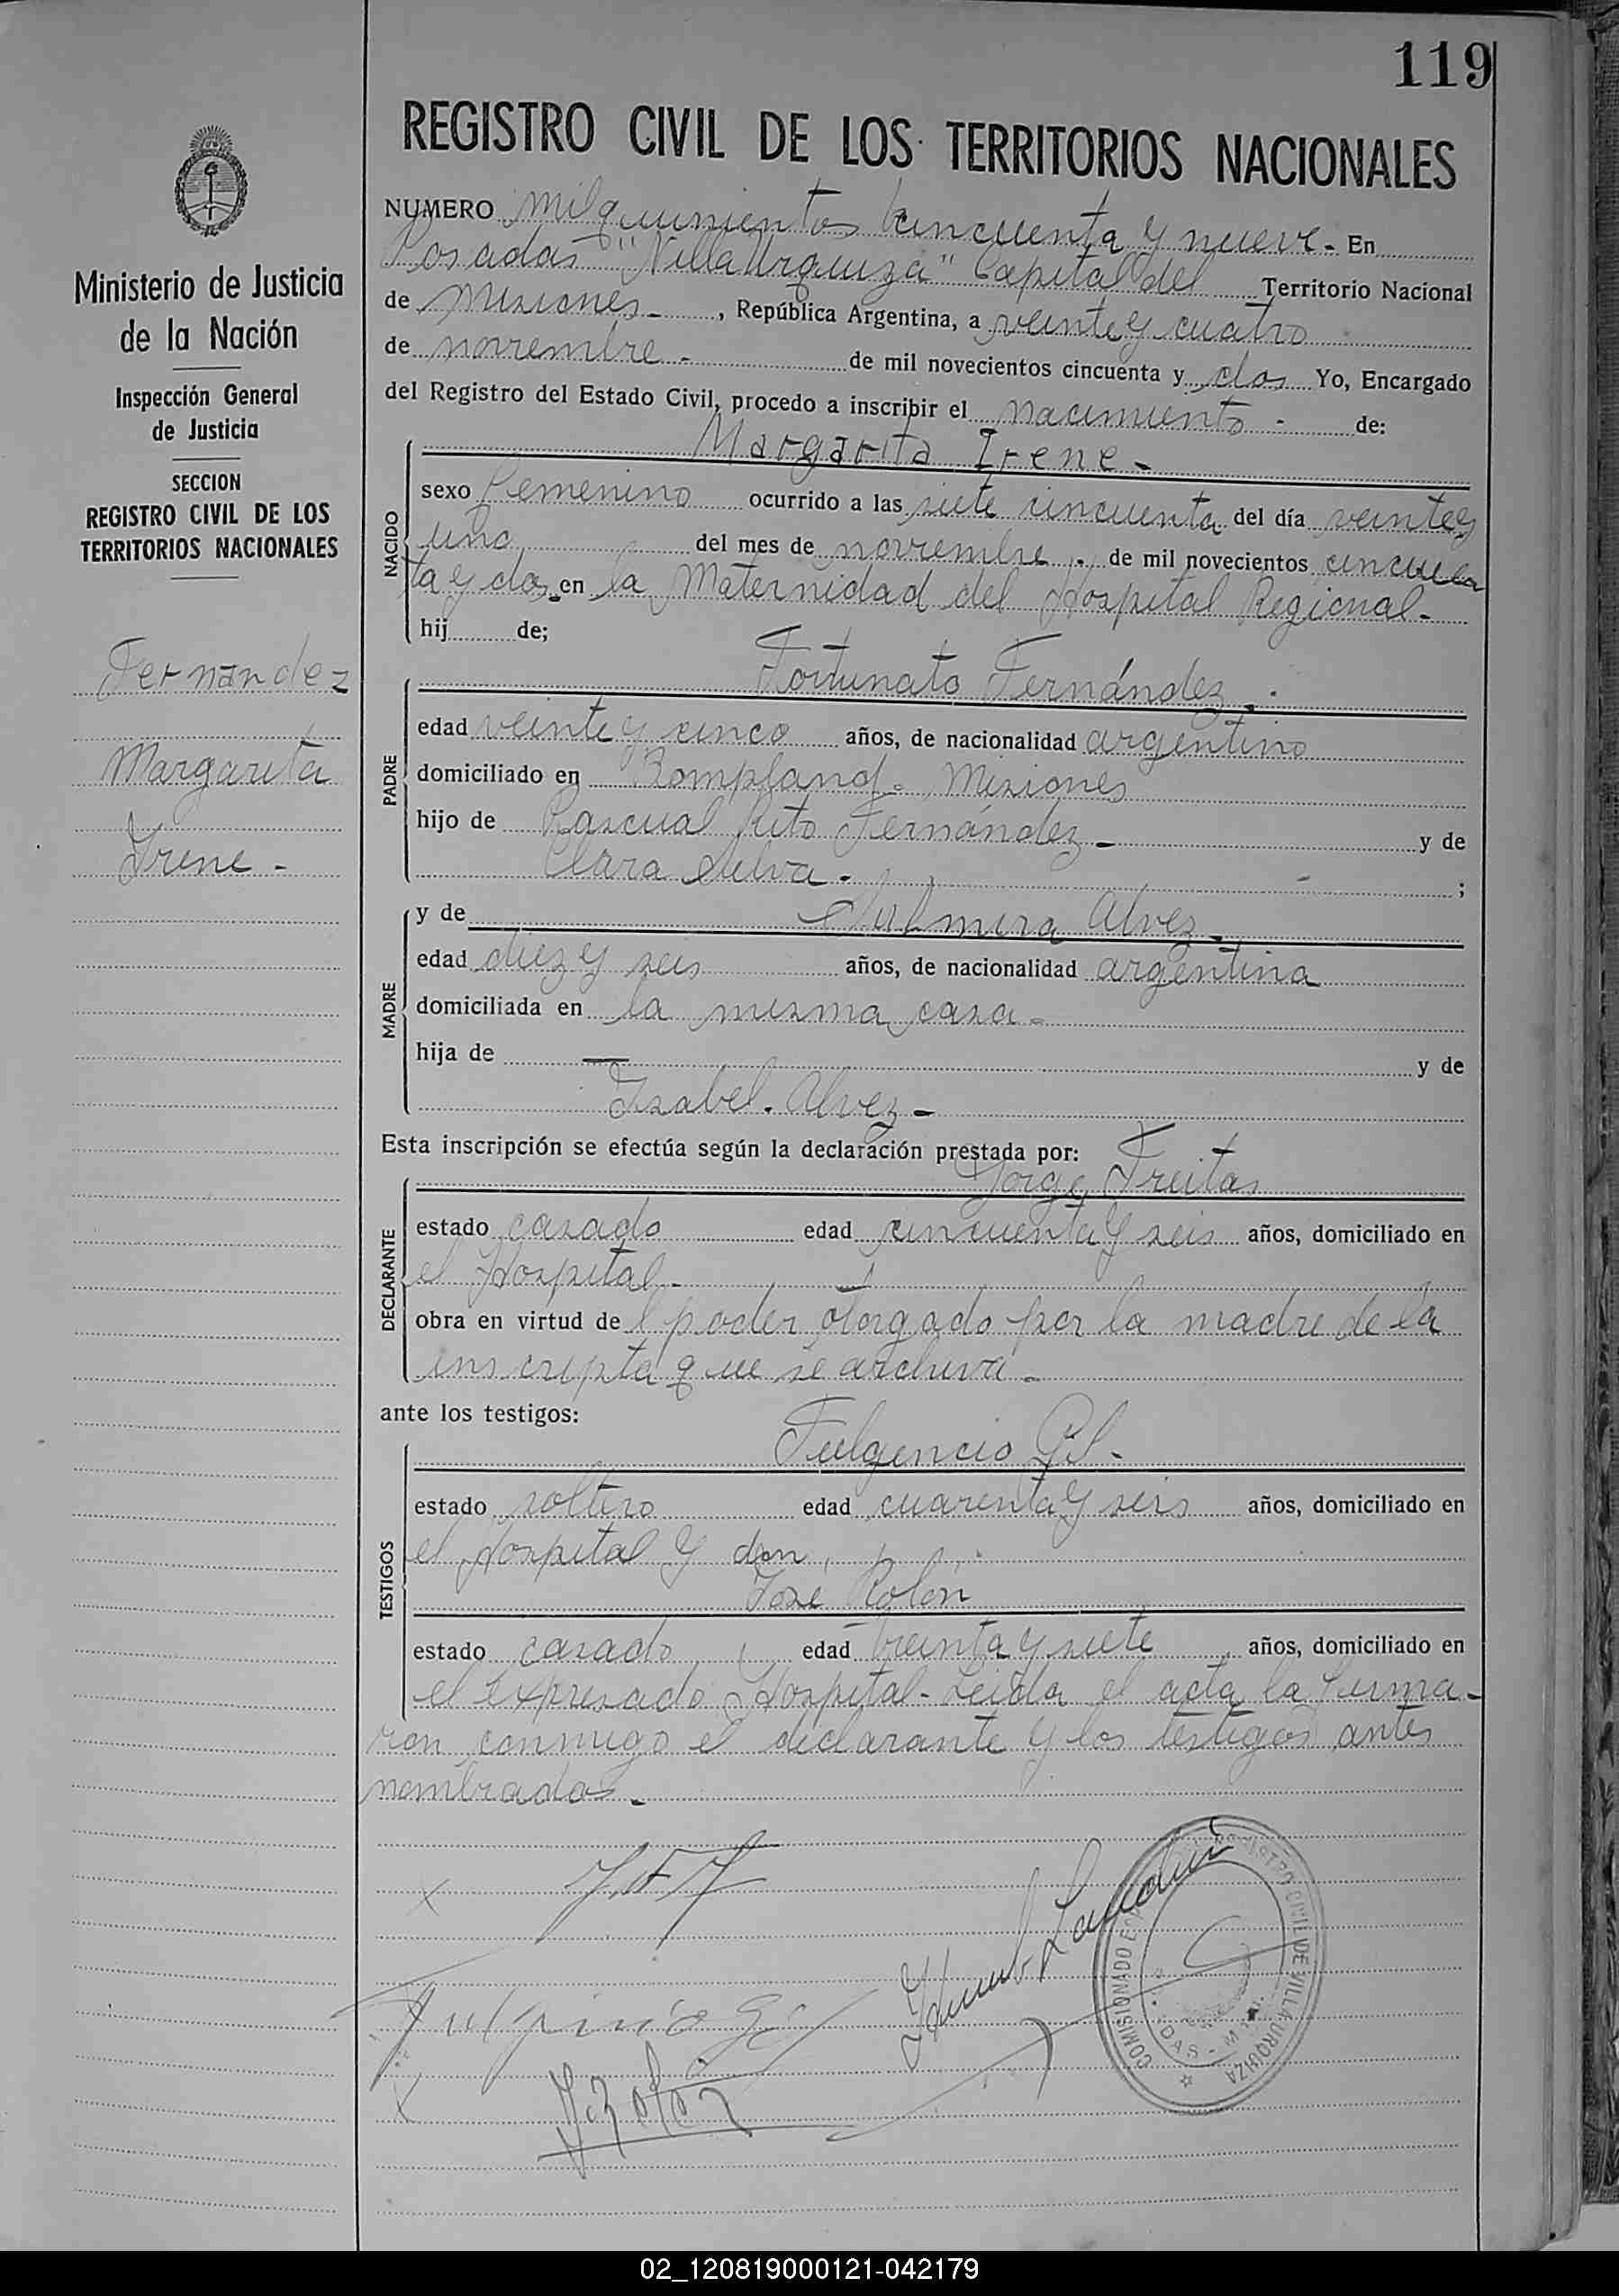 119
REGISTRO CIVIL DE LOS TERRITORIOS NACIONALES
Ministerio de Justicia
de la Nación
Inspección General
de Justicia
SECCION
REGISTRO CIVIL DE LOS
TERRITORIOS NACIONALES
Fernandez
Margarita
Irene -
NUMERO mil quinientos cincuenta y nueve - En
Posadas "Villa Urquiza" Capital del Territorio Nacional
de Misiones - , República Argentina, a veinte y cuatro
de noviembre - de mil novecientos cincuenta y dos Yo, Encargado
del Registro del Estado Civil, procedo a inscribir el nacimiento - de:
Margarita Irene -
NACIDO
sexo femenino ocurrido a las siete cincuenta del día veinte y
uno del mes de noviembre - de mil novecientos cincuen
ta y dos en la Maternidad del Hospital Regional -
hij de;
Fortunato Fernández -
PADRE
edad veinte y cinco años, de nacionalidad argentino
domiciliado en Bompland - Misiones
hijo de Pascual Rito Fernández - y de
Clara Silva - ;
MADRE
y de Alvez -
edad diez y seis años, de nacionalidad argentina
domiciliada en la misma casa -
hija de — y de
Isabel Alvez -
Esta inscripción se efectúa según la declaración prestada por:
Jorge Freitas
DECLARANTE
estado casado edad cincuenta y seis años, domiciliado en
el Hospital -
obra en virtud de l poder otorgado por la madre de la
inscripta que se archiva -
ante los testigos:
Fulgencio Gil -
TESTIGOS
estado soltero edad cuarenta y seis años, domiciliado en
el Hospital y don
José Rolón
estado casado edad treinta y siete años, domiciliado en
el expresado Hospital - Leida el acta la firma-
ron conmigo el declarante y los testigos antes
nombrados -
REGISTRO CIVIL DE VILLA URQUIZA
COMISIONADO
02_120819000121-042179